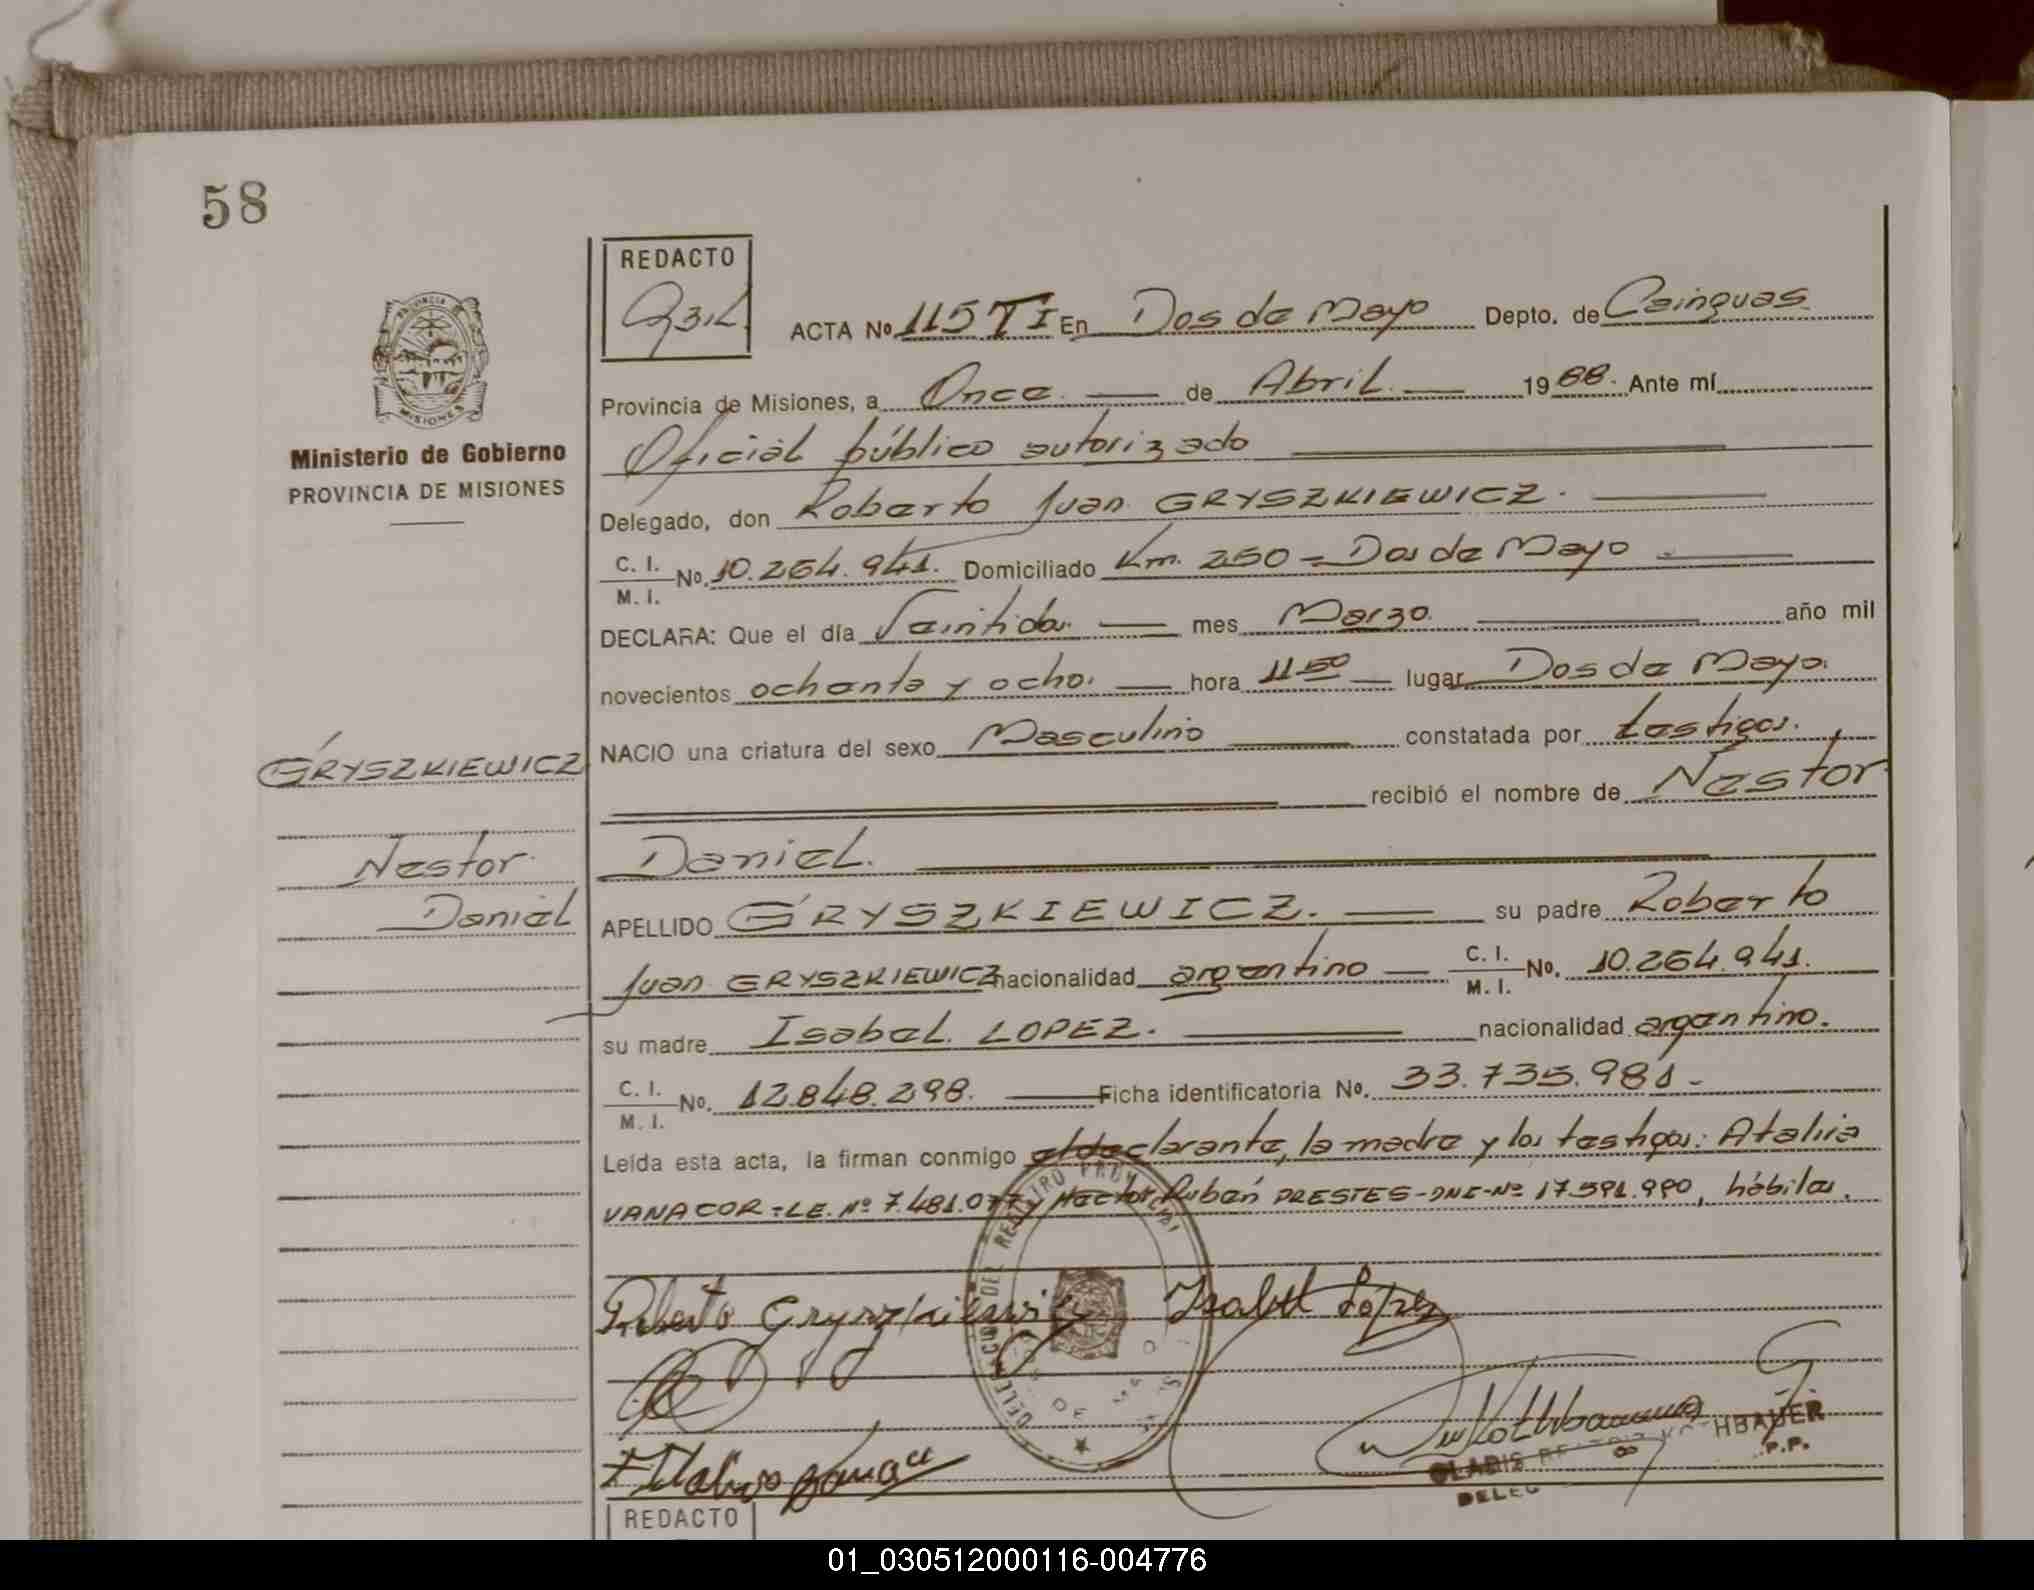 58
REDACTO
ACTA No. 115 T I En Dos de Mayo Depto. de Cainguas
Provincia de Misiones, a Once de Abril 1988. Ante mí
Oficial público autorizado
Ministerio de Gobierno
PROVINCIA DE MISIONES
Delegado, don Roberto Juan GRYSZKIEWICZ.
C. I. / M. I. No. 10.264.941. Domiciliado Km. 250 - Dos de Mayo
DECLARA: Que el día Veintidos mes Marzo año mil
novecientos ochenta y ocho. hora 11 50 lugar Dos de Mayo.
NACIO una criatura del sexo Masculino constatada por testigos.
GRYSZKIEWICZ
recibió el nombre de Nestor
Nestor
Daniel.
Daniel
APELLIDO GRYSZKIEWICZ. su padre Roberto
Juan GRYSZKIEWICZ nacionalidad argentino C. I. / M. I. No. 10.264.941.
su madre Isabel LOPEZ. nacionalidad argentino.
C. I. / M. I. No. 12.848.298. Ficha identificatoria No. 33.735.981-
Leída esta acta, la firman conmigo el declarante, la madre y los testigos: Ataliva
VANACOR - LE. Nº 7.481.077 y Hector Rubén PRESTES - DNI - Nº 17.591.990, hábiles.
DELEGACION DEL REGISTRO PROVINCIAL
Roberto Gryszkiewicz Isabel Lopez
GLADIS BEATRIZ KOTHBAUER
DELEG P.P.
REDACTO
01_030512000116-004776